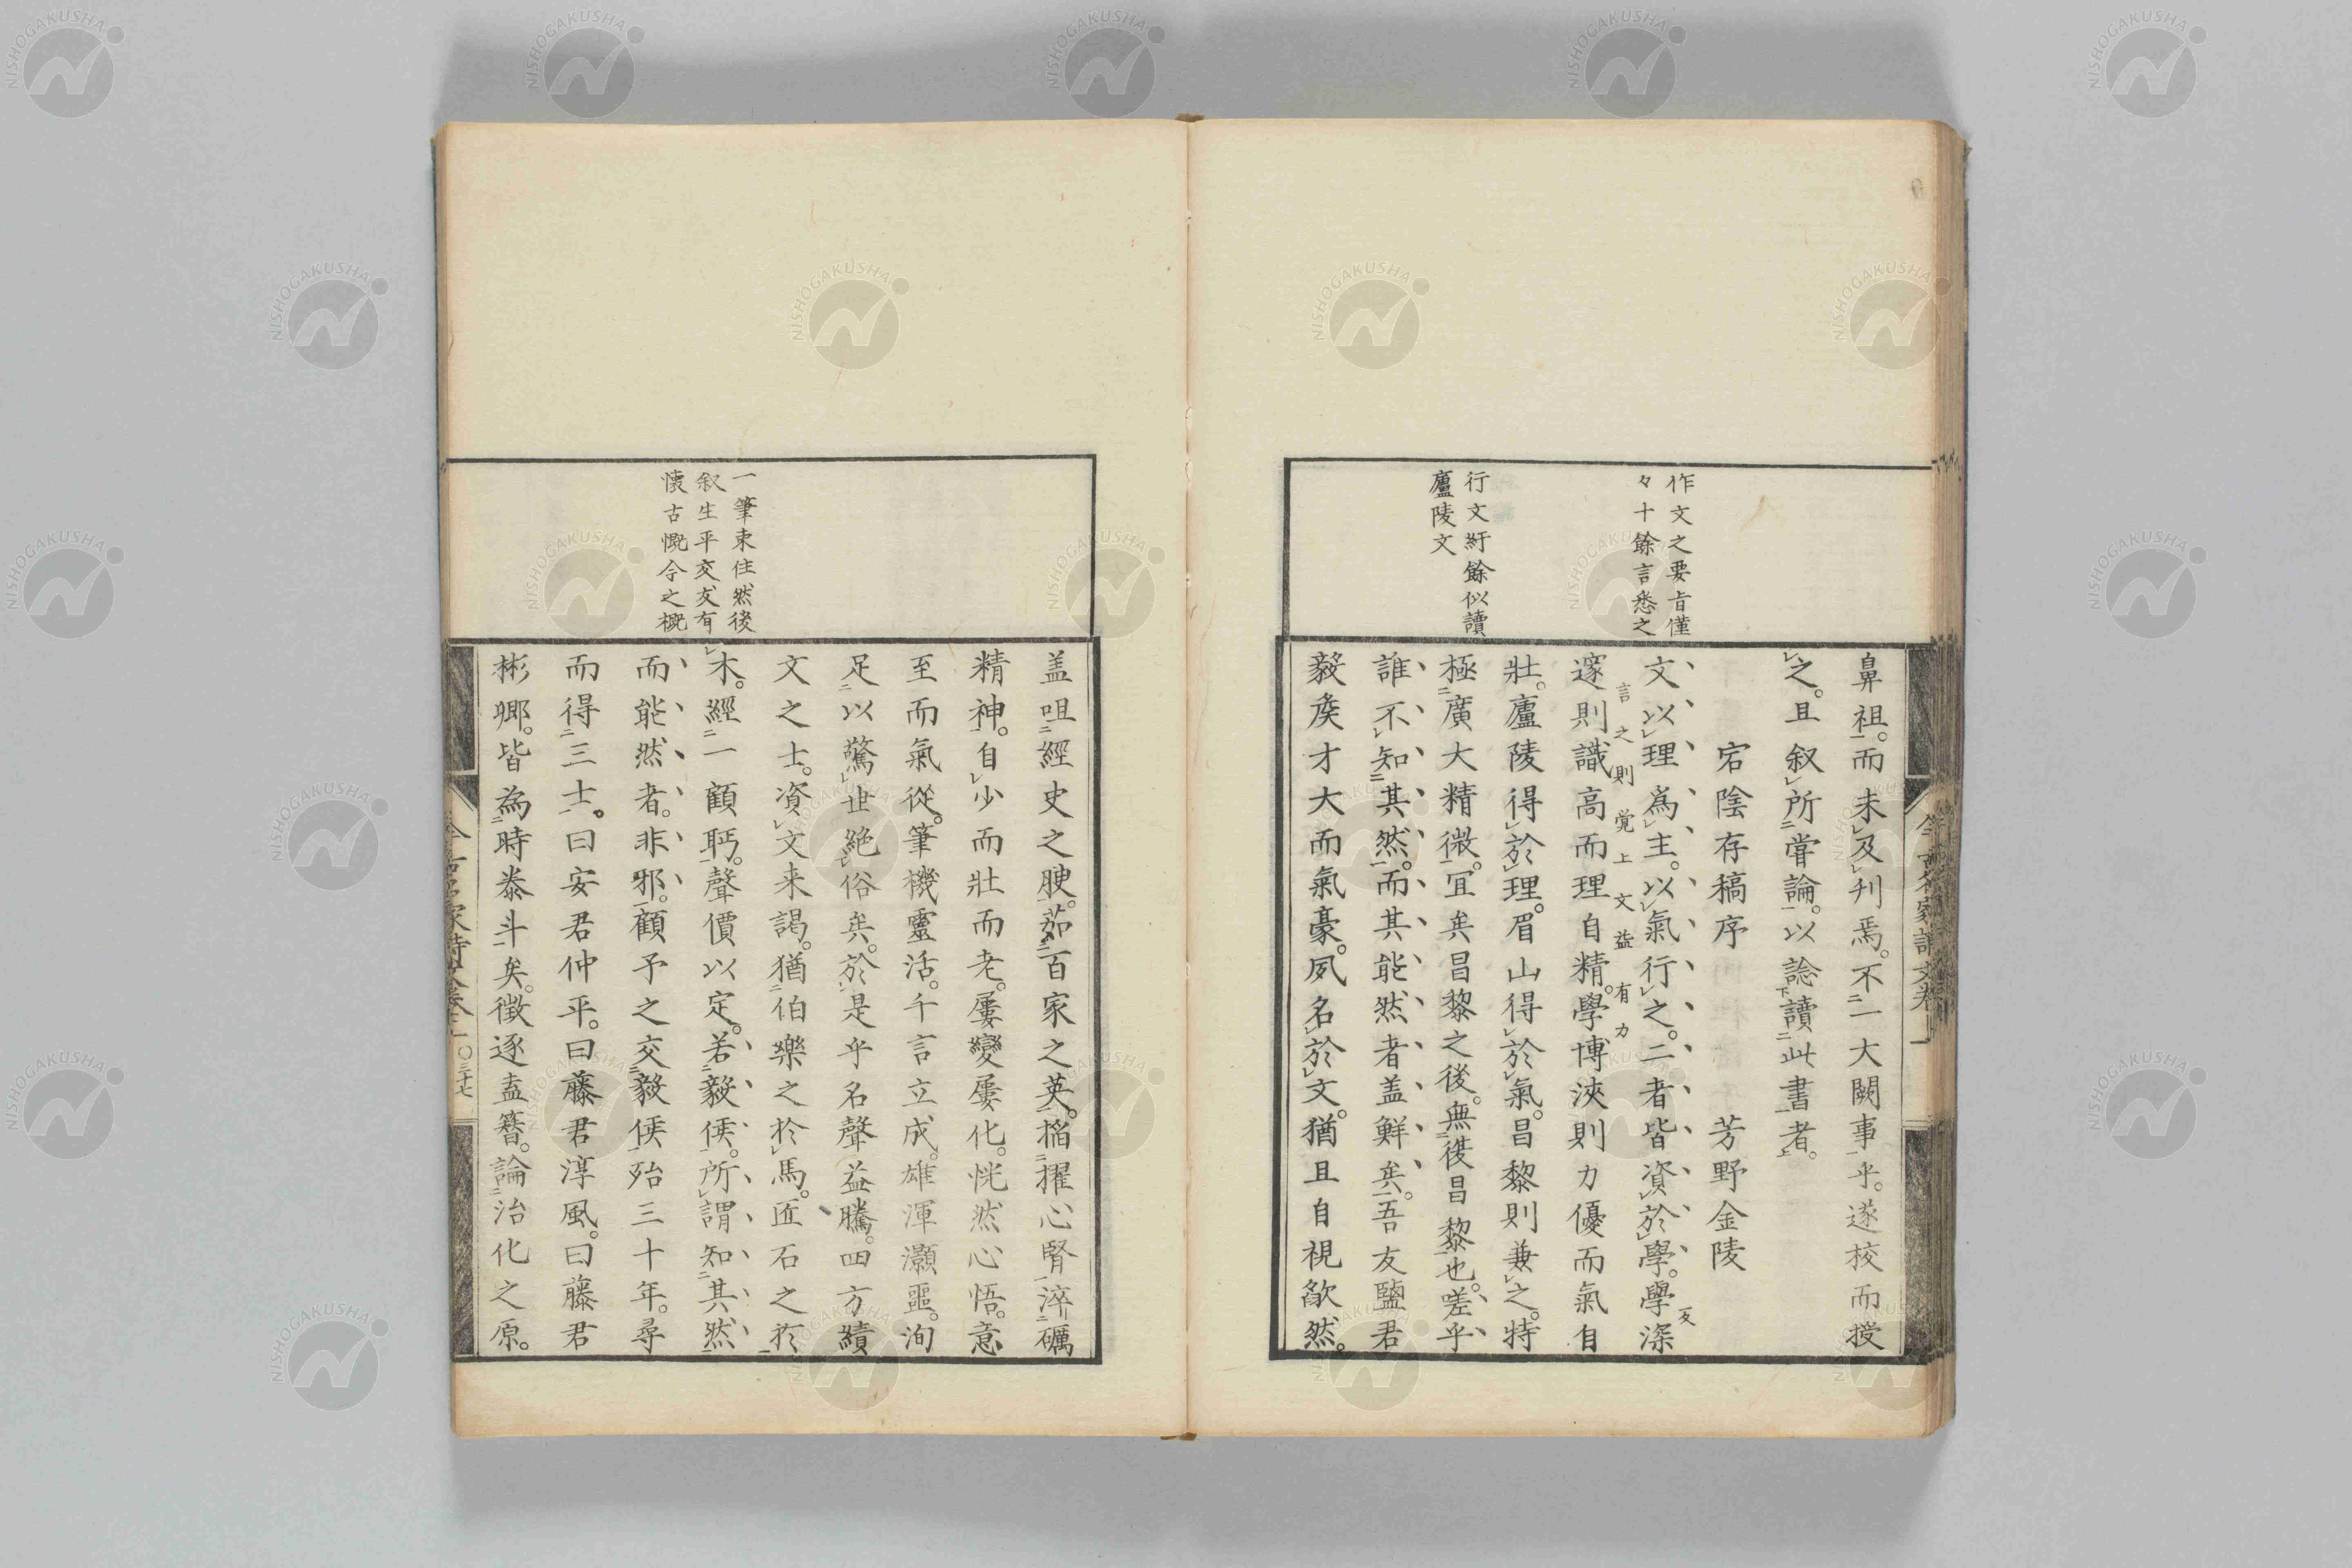 鼻祖。而未及刊焉。不一大闕事乎。遂校而授
之。且叙所甞論。以諗讀此書者。
宕陰存稿序 芳野金陵
文以理爲主。以氣行之。二者皆資於學。學深
邃則識高而理自精。學博浹則力優而氣自
壯。廬陵得於理。眉山得於氣。昌黎則兼之。特
極廣大精微。冝矣昌黎之後。無復昌黎也。嗟乎
誰不知其然。而其能然者盖鮮矣。吾友鹽君
毅矦才大而氣豪。夙名於文。猶且自視欿然。
作文之要旨僅
々十餘言悉之
行文紆餘似讀
廬陵文
言之則覚上文益有力
盖咀經史之腴。茹百家之英。搯擢心腎淬礪
精神。自少而壯而老。屢變屢化。恍然心悟。意
至而氣從。筆機靈活。千言立成。雄渾灝噩。洵
足以驚世絶俗矣。於是乎名聲益騰。四方績
文之士。資文来謁。猶伯樂之於馬。匠石之於
木。經一顧眄。聲價以定。若毅侯。所謂知其然
而能然者。非邪。顧予之交毅侯殆三十年。尋
而得三士。曰安君仲平。曰藤君淳風。曰藤君
彬卿。皆為時㤗斗矣。徴逐盍簪。論治化之原。
一筆束住然後
叙生平交友有
懐古慨今之概
今古名家詩文卷二〇三十七